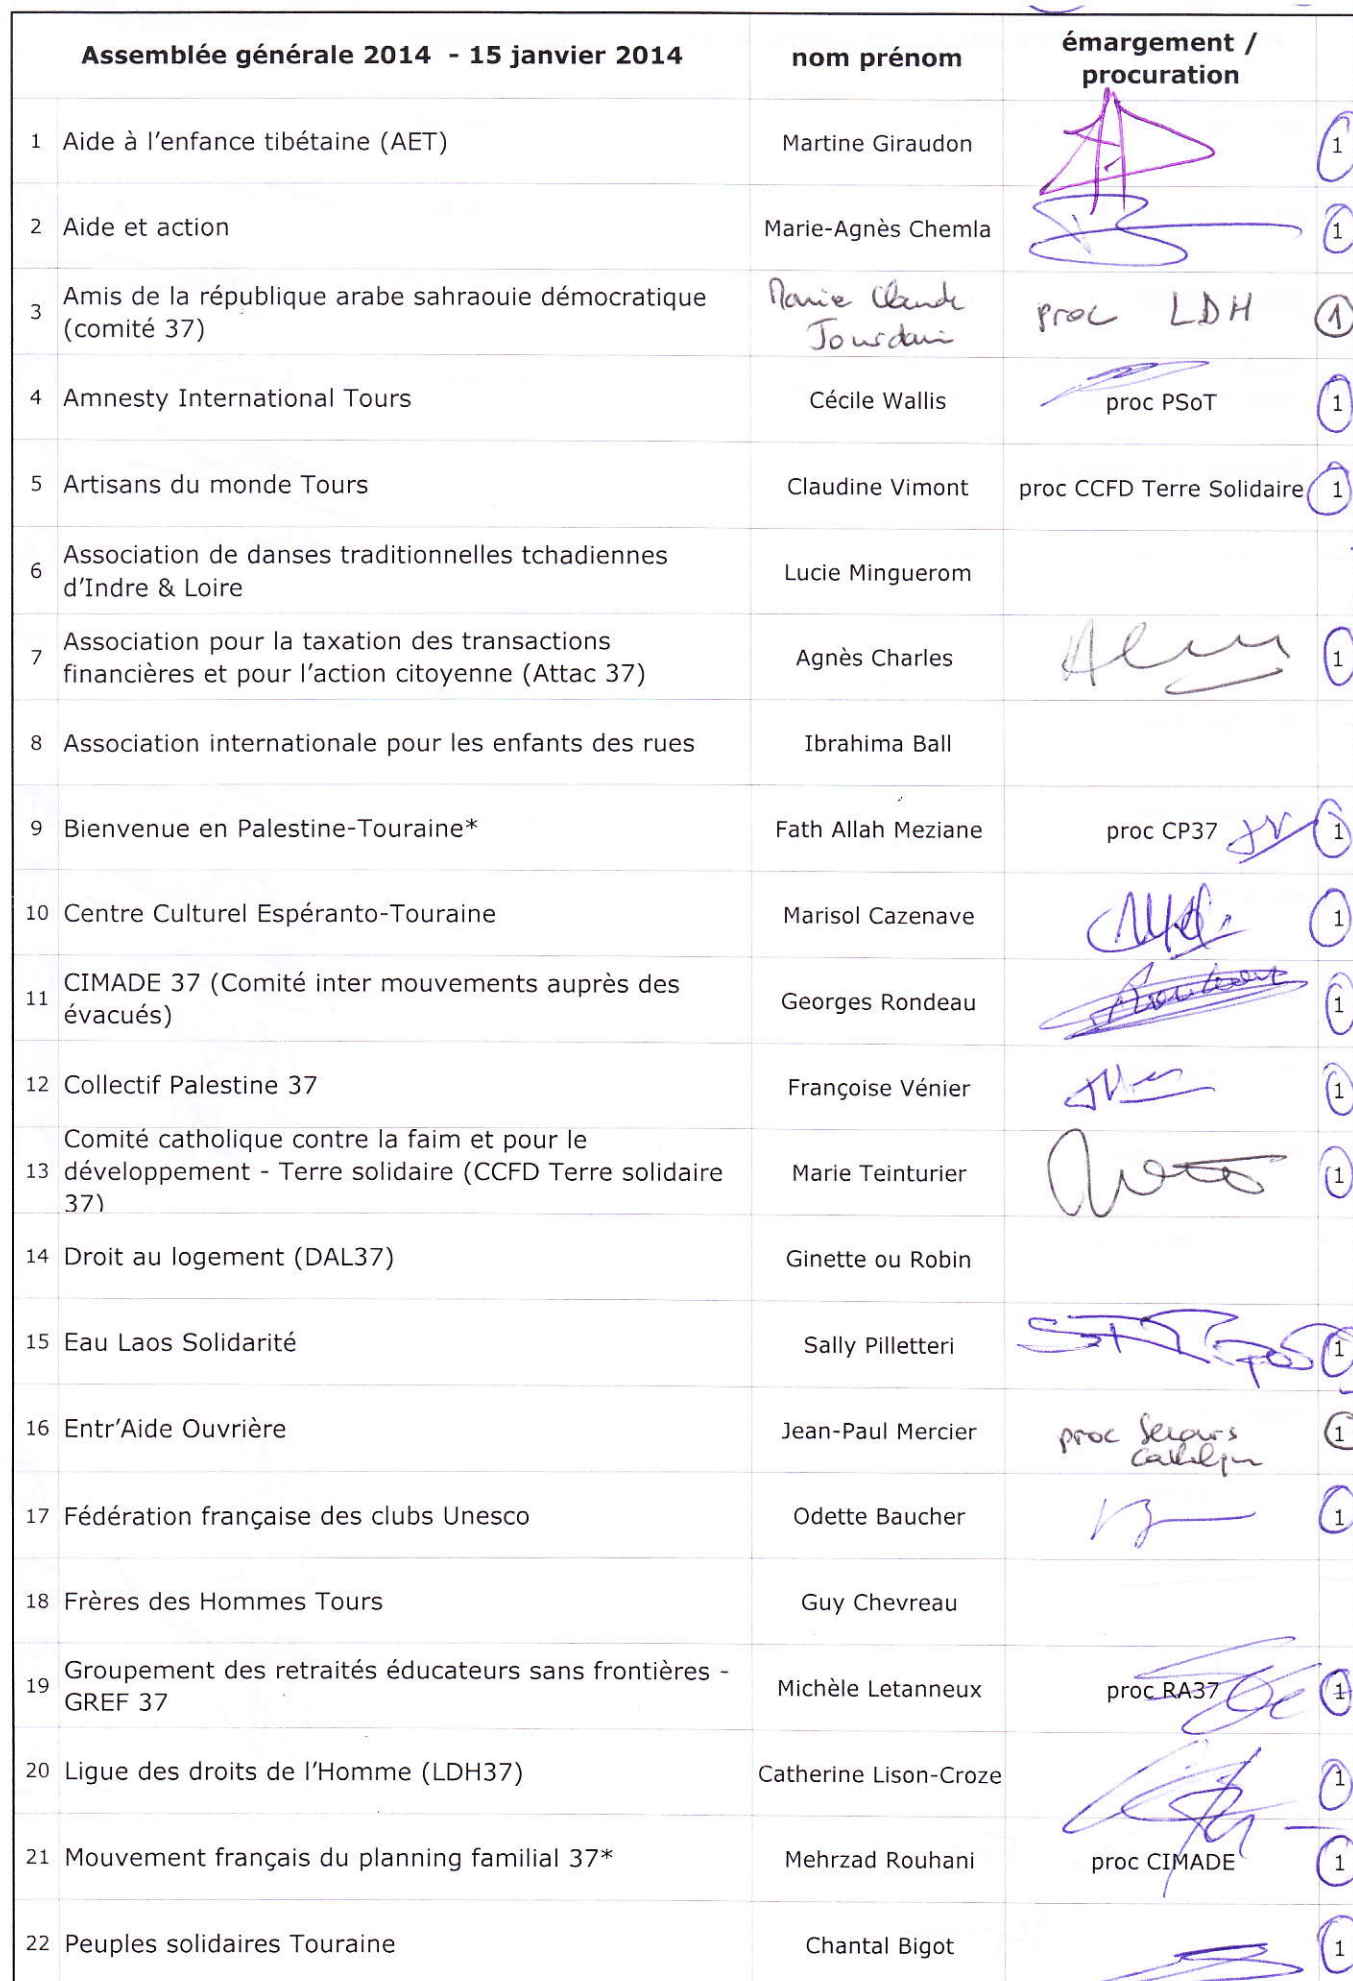 Assemblée générale 2014 - 15 janvier 2014 nom prénom émargement / procuration
1 Aide à l'enfance tibétaine (AET) Martine Giraudon 1
2 Aide et action Marie-Agnès Chemla 1
3 Amis de la république arabe sahraouie démocratique (comité 37) Marie Claude Jourdain proc LDH 1
4 Amnesty International Tours Cécile Wallis proc PSoT 1
5 Artisans du monde Tours Claudine Vimont proc CCFD Terre Solidaire 1
6 Association de danses traditionnelles tchadiennes d'Indre & Loire Lucie Minguerom
7 Association pour la taxation des transactions financières et pour l'action citoyenne (Attac 37) Agnès Charles 1
8 Association internationale pour les enfants des rues Ibrahima Ball
9 Bienvenue en Palestine-Touraine* Fath Allah Meziane proc CP37 1
10 Centre Culturel Espéranto-Touraine Marisol Cazenave 1
11 CIMADE 37 (Comité inter mouvements auprès des évacués) Georges Rondeau 1
12 Collectif Palestine 37 Françoise Vénier 1
13 Comité catholique contre la faim et pour le développement - Terre solidaire (CCFD Terre solidaire 37) Marie Teinturier 1
14 Droit au logement (DAL37) Ginette ou Robin
15 Eau Laos Solidarité Sally Pilletteri 1
16 Entr'Aide Ouvrière Jean-Paul Mercier proc Secours Catholique 1
17 Fédération française des clubs Unesco Odette Baucher 1
18 Frères des Hommes Tours Guy Chevreau
19 Groupement des retraités éducateurs sans frontières - GREF 37 Michèle Letanneux proc RA37 1
20 Ligue des droits de l'Homme (LDH37) Catherine Lison-Croze 1
21 Mouvement français du planning familial 37* Mehrzad Rouhani proc CIMADE 1
22 Peuples solidaires Touraine Chantal Bigot 1